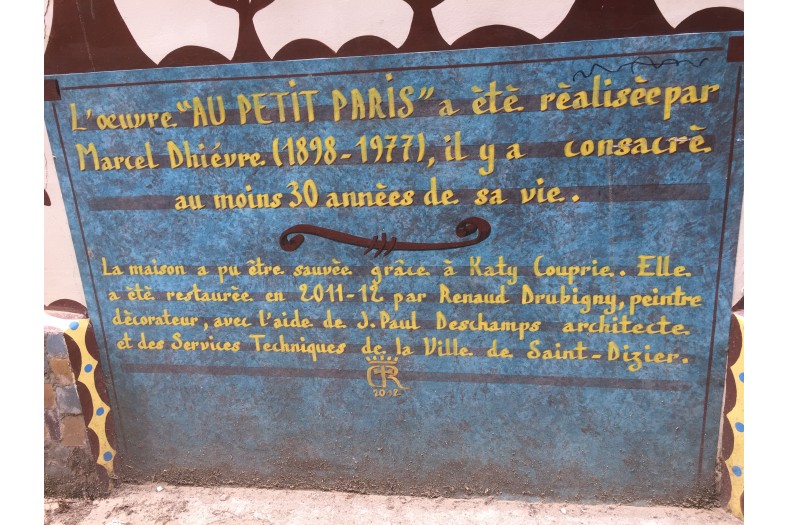 L'oeuvre "AU PETIT PARIS" a ètè rèalisèe par
Marcel Dhiévre (1898-1977), il y a consacrè
au moins 30 annèes de sa vie.
La maison a pu être sauvèe grâce à Katy Couprie. Elle
a ètè restaurèe en 2011-12 par Renaud Drubigny, peintre
dècorateur, avec l'aide de J. Paul Deschamps architecte
et des Services Techniques de la Ville de Saint-Dizier.